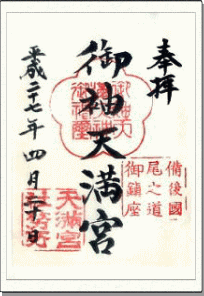 奉拝
備後國
尾之道
御鎮座
御袖天満宮
平成二十七年四月二十日
天満宮
社務所